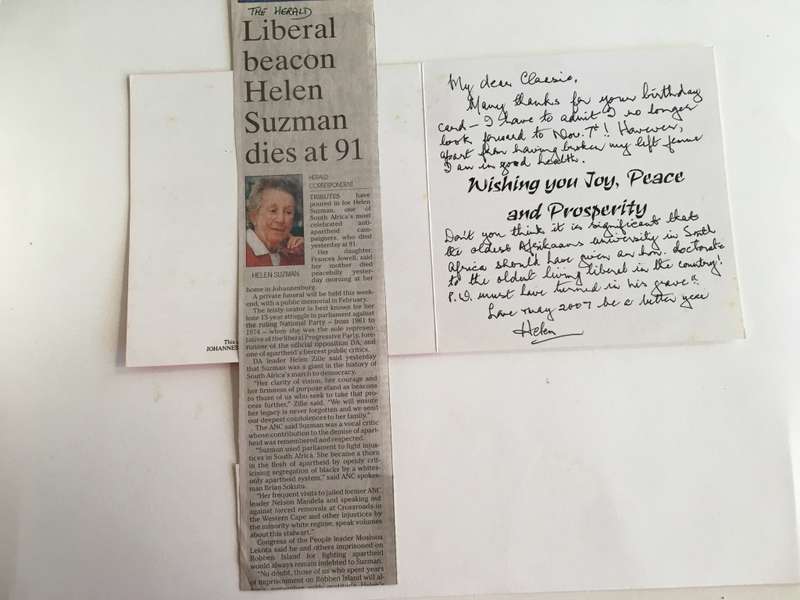 THE HERALD
Liberal
beacon
Helen
Suzman
dies at 91
HERALD
CORRESPONDENT
HELEN SUZMAN
TRIBUTES have
poured in for Helen
Suzman, one of
South Africa's most
celebrated anti-
apartheid cam-
paigners, who died
yesterday at 91.
Her daughter,
Frances Jowell, said
her mother died
peacefully yester-
day morning at her
home in Johannesburg.
A private funeral will be held this week-
end, with a public memorial in February.
The feisty orator is best known for her
lone 13-year struggle in parliament against
the ruling National Party – from 1961 to
1974 – when she was the sole representa-
tive of the liberal Progressive Party, fore-
runner of the official opposition DA, and
one of apartheid's fiercest public critics.
DA leader Helen Zille said yesterday
that Suzman was a giant in the history of
South Africa's march to democracy.
"Her clarity of vision, her courage and
her firmness of purpose stand as beacons
to those of us who seek to take that pro-
cess further," Zille said. "We will ensure
her legacy is never forgotten and we send
our deepest condolences to her family."
The ANC said Suzman was a vocal critic
whose contribution to the demise of apart-
heid was remembered and respected.
"Suzman used parliament to fight injus-
tices in South Africa. She became a thorn
in the flesh of apartheid by openly crit-
icising segregation of blacks by a whites-
only apartheid system," said ANC spokes-
man Brian Sokutu.
"Her frequent visits to jailed former ANC
leader Nelson Mandela and speaking out
against forced removals at Crossroads in
the Western Cape and other injustices by
the minority white regime, speak volumes
about this stalwart."
Congress of the People leader Mosiuoa
Lekota said he and others imprisoned on
Robben Island for fighting apartheid
would always remain indebted to Suzman.
"No doubt, those of us who spent years
of imprisonment on Robben Island will al-
This
JOHANNES
My dear Classie,
Many thanks for your birthday
card – I have to admit I no longer
look forward to Nov. 7th! However,
apart from having broken my left femur
I am in good health.
Wishing you Joy, Peace
and Prosperity
Don't you think it is significant that
the oldest Afrikaans university in South
Africa should have given an hon. doctorate
to the oldest living liberal in the country!
P.W. must have turned in his grave!!
Love & may 2007 be a better year
Helen